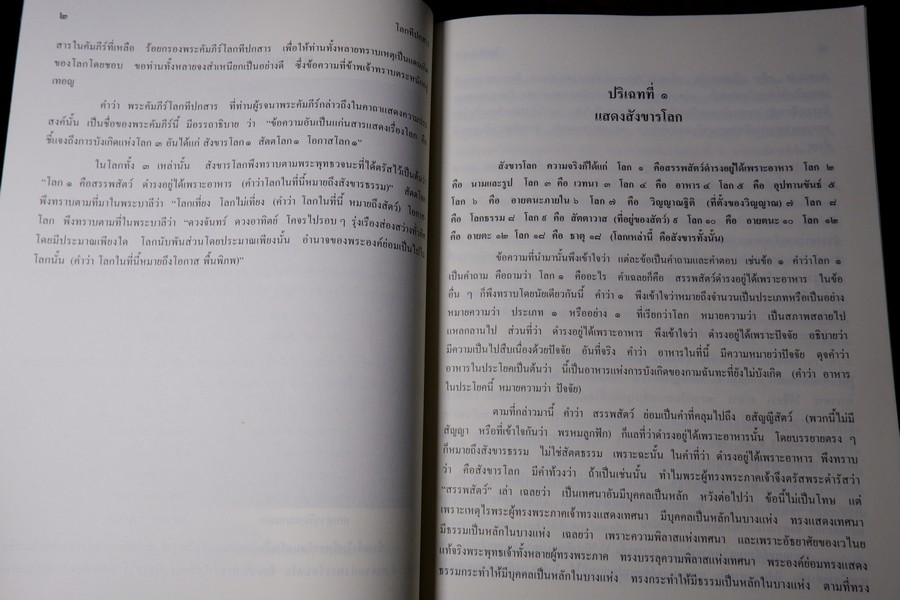 ๒
โลกทีปกสาร
สารในคัมภีร์ที่เหลือ ร้อยกรองพระคัมภีร์โลกทีปกสาร เพื่อให้ท่านทั้งหลายทราบเหตุเป็นแดนเกิด
ของโลกโดยชอบ ขอท่านทั้งหลายจงสำเหนียกเป็นอย่างดี ซึ่งข้อความที่ข้าพเจ้าทราบตระหนักอยู่
เทอญ
คำว่า พระคัมภีร์โลกทีปกสาร ที่ท่านผู้รจนาพระคัมภีร์กล่าวถึงในคาถาแสดงความประ
สงค์นั้น เป็นชื่อของพระคัมภีร์นี้ มีอรรถาธิบาย ว่า “ข้อความอันเป็นแก่นสารแสดงเรื่องโลก คือ
ชี้แจงถึงการบังเกิดแห่งโลก ๓ อันได้แก่ สังขารโลก ๑ สัตตโลก ๑ โอกาสโลก ๑”
ในโลกทั้ง ๓ เหล่านั้น สังขารโลกพึงทราบตามพระพุทธวจนะที่ได้ตรัสไว้เป็นต้นว่า
“โลก ๑ คือสรรพสัตว์ ดำรงอยู่ได้เพราะอาหาร (คำว่าโลกในที่นี้หมายถึงสังขารธรรม)” สัตตโลก
พึงทราบตามที่มาในพระบาลีว่า “โลกเที่ยง โลกไม่เที่ยง (คำว่า โลกในที่นี้ หมายถึงสัตว์) โอกาส
โลก พึงทราบตามที่ในพระบาลีว่า “ดวงจันทร์ ดวงอาทิตย์ โคจรไปรอบ ๆ รุ่งเรืองส่องสว่างทั่วทิศ
โดยมีประมาณเพียงใด โลกนับพันส่วนโดยประมาณเพียงนั้น อำนาจของพระองค์ย่อมเป็นไปใน
โลกนั้น (คำว่า โลกในที่นี้หมายถึงโอกาส พื้นพิภพ)”
ปริเฉทที่ ๑
แสดงสังขารโลก
สังขารโลก ความจริงก็ได้แก่ โลก ๑ คือสรรพสัตว์ดำรงอยู่ได้เพราะอาหาร โลก ๒
คือ นามและรูป โลก ๓ คือ เวทนา ๓ โลก ๔ คือ อาหาร ๔ โลก ๕ คือ อุปทานขันธ์ ๕
โลก ๖ คือ อายตนะภายใน ๖ โลก ๗ คือ วิญญาณฐิติ (ที่ตั้งของวิญญาณ) ๗ โลก ๘
คือ โลกธรรม ๘ โลก ๙ คือ สัตตาวาส (ที่อยู่ของสัตว์) ๙ โลก ๑๐ คือ อายตนะ ๑๐ โลก ๑๒
คือ อายตะ ๑๒ โลก ๑๘ คือ ธาตุ ๑๘ (โลกเหล่านี้ คือสังขารทั้งนั้น)
ข้อความที่นำมานั้นพึงเข้าใจว่า แต่ละข้อเป็นคำถามและคำตอบ เช่นข้อ ๑ คำว่าโลก ๑
เป็นคำถาม คือถามว่า โลก ๑ คืออะไร คำเฉลยก็คือ สรรพสัตว์ดำรงอยู่ได้เพราะอาหาร ในข้อ
อื่น ๆ ก็พึงทราบโดยนัยเดียวกันนี้ คำว่า ๑ พึงเข้าใจว่าหมายถึงจำนวนเป็นประเภทหรือเป็นอย่าง
หมายความว่า ประเภท ๑ หรืออย่าง ๑ ที่เรียกว่าโลก หมายความว่า เป็นสภาพสลายไป
แหลกลานไป ส่วนที่ว่า ดำรงอยู่ได้เพราะอาหาร พึงเข้าใจว่า ดำรงอยู่ได้เพราะปัจจัย อธิบายว่า
มีความเป็นไปสืบเนื่องด้วยปัจจัย อันที่จริง คำว่า อาหารในที่นี้ มีความหมายว่าปัจจัย ดุจคำว่า
อาหารในประโยคเป็นต้นว่า นี้เป็นอาหารแห่งการบังเกิดของกามฉันทะที่ยังไม่บังเกิด (คำว่า อาหาร
ในประโยคนี้ หมายความว่า ปัจจัย)
ตามที่กล่าวมานี้ คำว่า สรรพสัตว์ ย่อมเป็นคำที่คลุมไปถึง อสัญญีสัตว์ (พวกนี้ไม่มี
สัญญา หรือที่เข้าใจกันว่า พรหมลูกฟัก) ก็แลที่ว่าดำรงอยู่ได้เพราะอาหารนั้น โดยบรรยายตรง ๆ
ก็หมายถึงสังขารธรรม ไม่ใช่สัตตธรรม เพราะฉะนั้น ในคำที่ว่า ดำรงอยู่ได้เพราะอาหาร พึงทราบ
ว่า คือสังขารโลก มีคำท้วงว่า ถ้าเป็นเช่นนั้น ทำไมพระผู้ทรงพระภาคเจ้าจึงตรัสพระดำรัสว่า
“สรรพสัตว์” เล่า เฉลยว่า เป็นเทศนาอันมีบุคคลเป็นหลัก หวังต่อไปว่า ข้อนี้ไม่เป็นโทษ แต่
เพราะเหตุไรพระผู้ทรงพระภาคเจ้าทรงแสดงเทศนา มีบุคคลเป็นหลักในบางแห่ง ทรงแสดงเทศนา
มีธรรมเป็นหลักในบางแห่ง เฉลยว่า เพราะความพิลาสแห่งเทศนา และเพราะอัธยาศัยของเวไนย
แท้จริงพระพุทธเจ้าทั้งหลายผู้ทรงพระภาค ทรงบรรลุความพิลาสแห่งเทศนา พระองค์ย่อมทรงแสดง
ธรรมกระทำให้มีบุคคลเป็นหลักในบางแห่ง ทรงกระทำให้มีธรรมเป็นหลักในบางแห่ง ตามที่ทรง